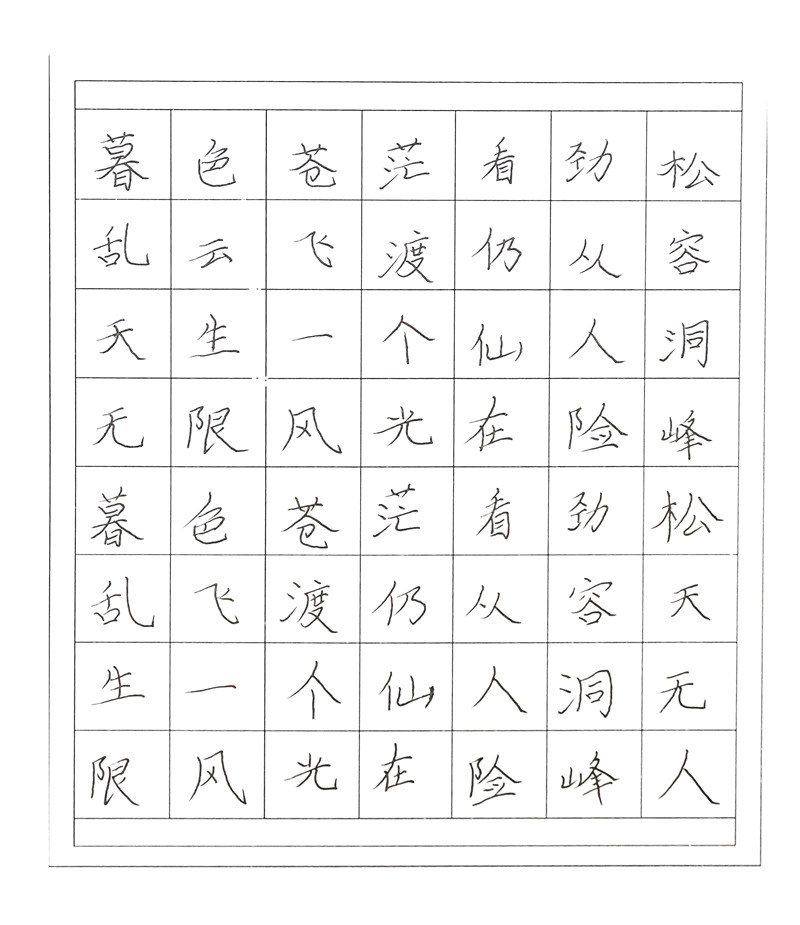 暮色苍茫看劲松
乱云飞渡仍从容
天生一个仙人洞
无限风光在险峰
暮色苍茫看劲松
乱飞渡仍从容天
生一个仙人洞无
限风光在险峰人